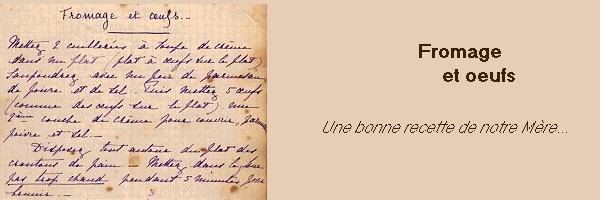 Fromage et œufs._
Mettez 2 cuillerées à soupe de crème
dans un plat (plat à œufs sur le plat)
Saupoudrez avec un peu de parmesan
de poivre et de sel. Puis mettez 5 œufs
(comme des œufs sur le plat), une
2ième couche de crème pour couvrir,
poivre et sel._
Disposez tout autour du plat des
croutons de pain._ Mettez dans le four
pas trop chaud pendant 5 minutes pour
Fromage
et oeufs
Une bonne recette de notre Mère...